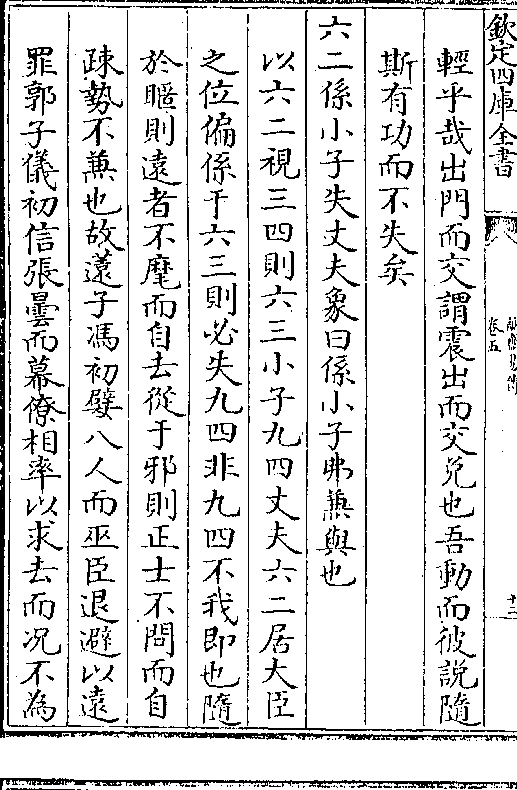 欽定四庫全書
卷五
十二
輕乎哉出門而交謂震出而交兌也吾動而彼說隨
斯有功而不失矣
六二係小子失丈夫象曰係小子弗兼與也
以六二視三四則六三小子九四丈夫六二居大臣
之位偏係于六三則必失九四非九四不我即也隨
於暱則遠者不麾而自去從于邪則正士不問而自
疎勢不兼也故薳子馮初嬖八人而巫臣退避以遠
罪郭子儀初信張曇而幕僚相率以求去而况不為